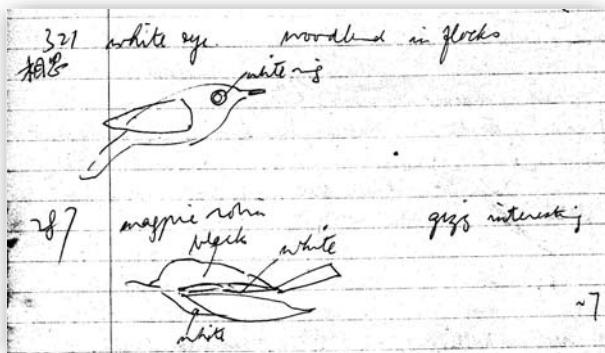 321 white eye. woodland in flocks
相思
white ring
287 magpie robin gizz interesting
black
white
white
~7